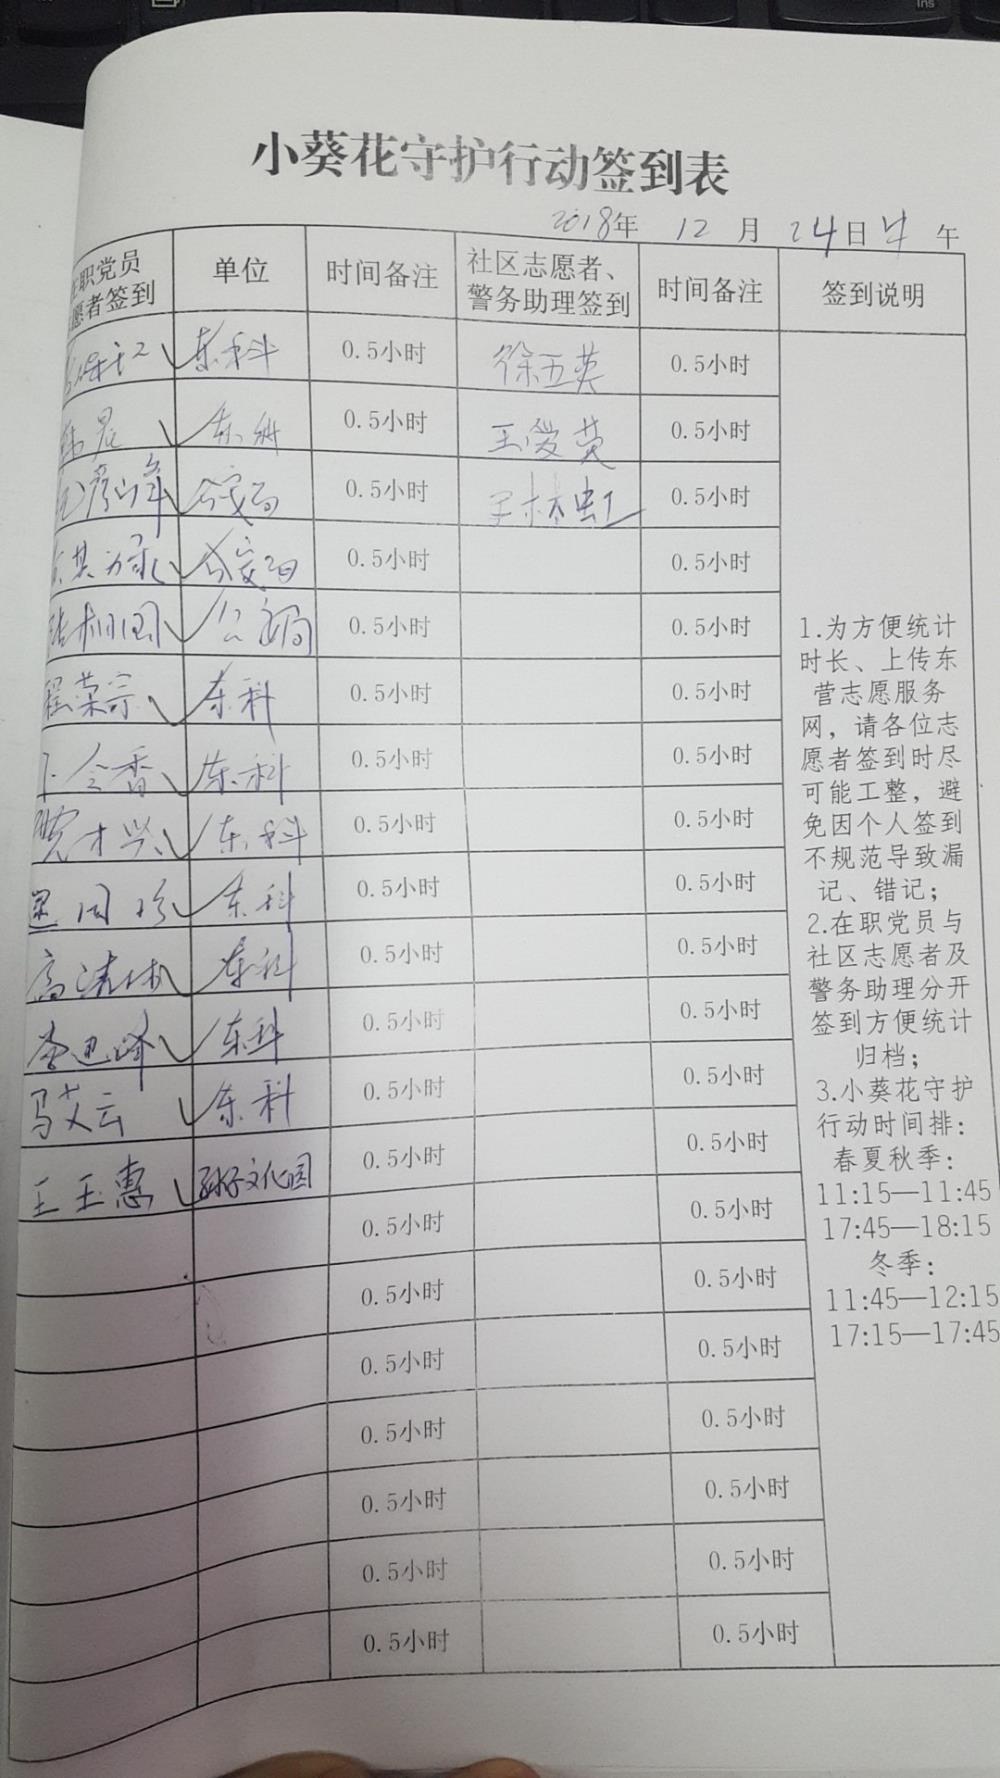 小葵花守护行动签到表
2018年 12 月 24日 午
在职党员 单位 时间备注 社区志愿者、 时间备注 签到说明
志愿者签到 警务助理签到
东科 0.5小时 徐五英 0.5小时
东科 0.5小时 王爱英 0.5小时
公安局 0.5小时 0.5小时
公安局 0.5小时 0.5小时
公安局 0.5小时 0.5小时
程荣宗 东科 0.5小时 0.5小时
东科 0.5小时 0.5小时
东科 0.5小时 0.5小时
东科 0.5小时 0.5小时
高清林 东科 0.5小时 0.5小时
东科 0.5小时 0.5小时
马艾云 东科 0.5小时 0.5小时
王玉惠 孙子文化园 0.5小时 0.5小时
0.5小时 0.5小时
0.5小时 0.5小时
0.5小时 0.5小时
0.5小时 0.5小时
0.5小时 0.5小时
0.5小时 0.5小时
0.5小时 0.5小时
1.为方便统计
时长、上传东
营志愿服务
网，请各位志
愿者签到时尽
可能工整，避
免因个人签到
不规范导致漏
记、错记；
2.在职党员与
社区志愿者及
警务助理分开
签到方便统计
归档；
3.小葵花守护
行动时间排：
春夏秋季：
11:15—11:45
17:45—18:15
冬季：
11:45—12:15
17:15—17:45